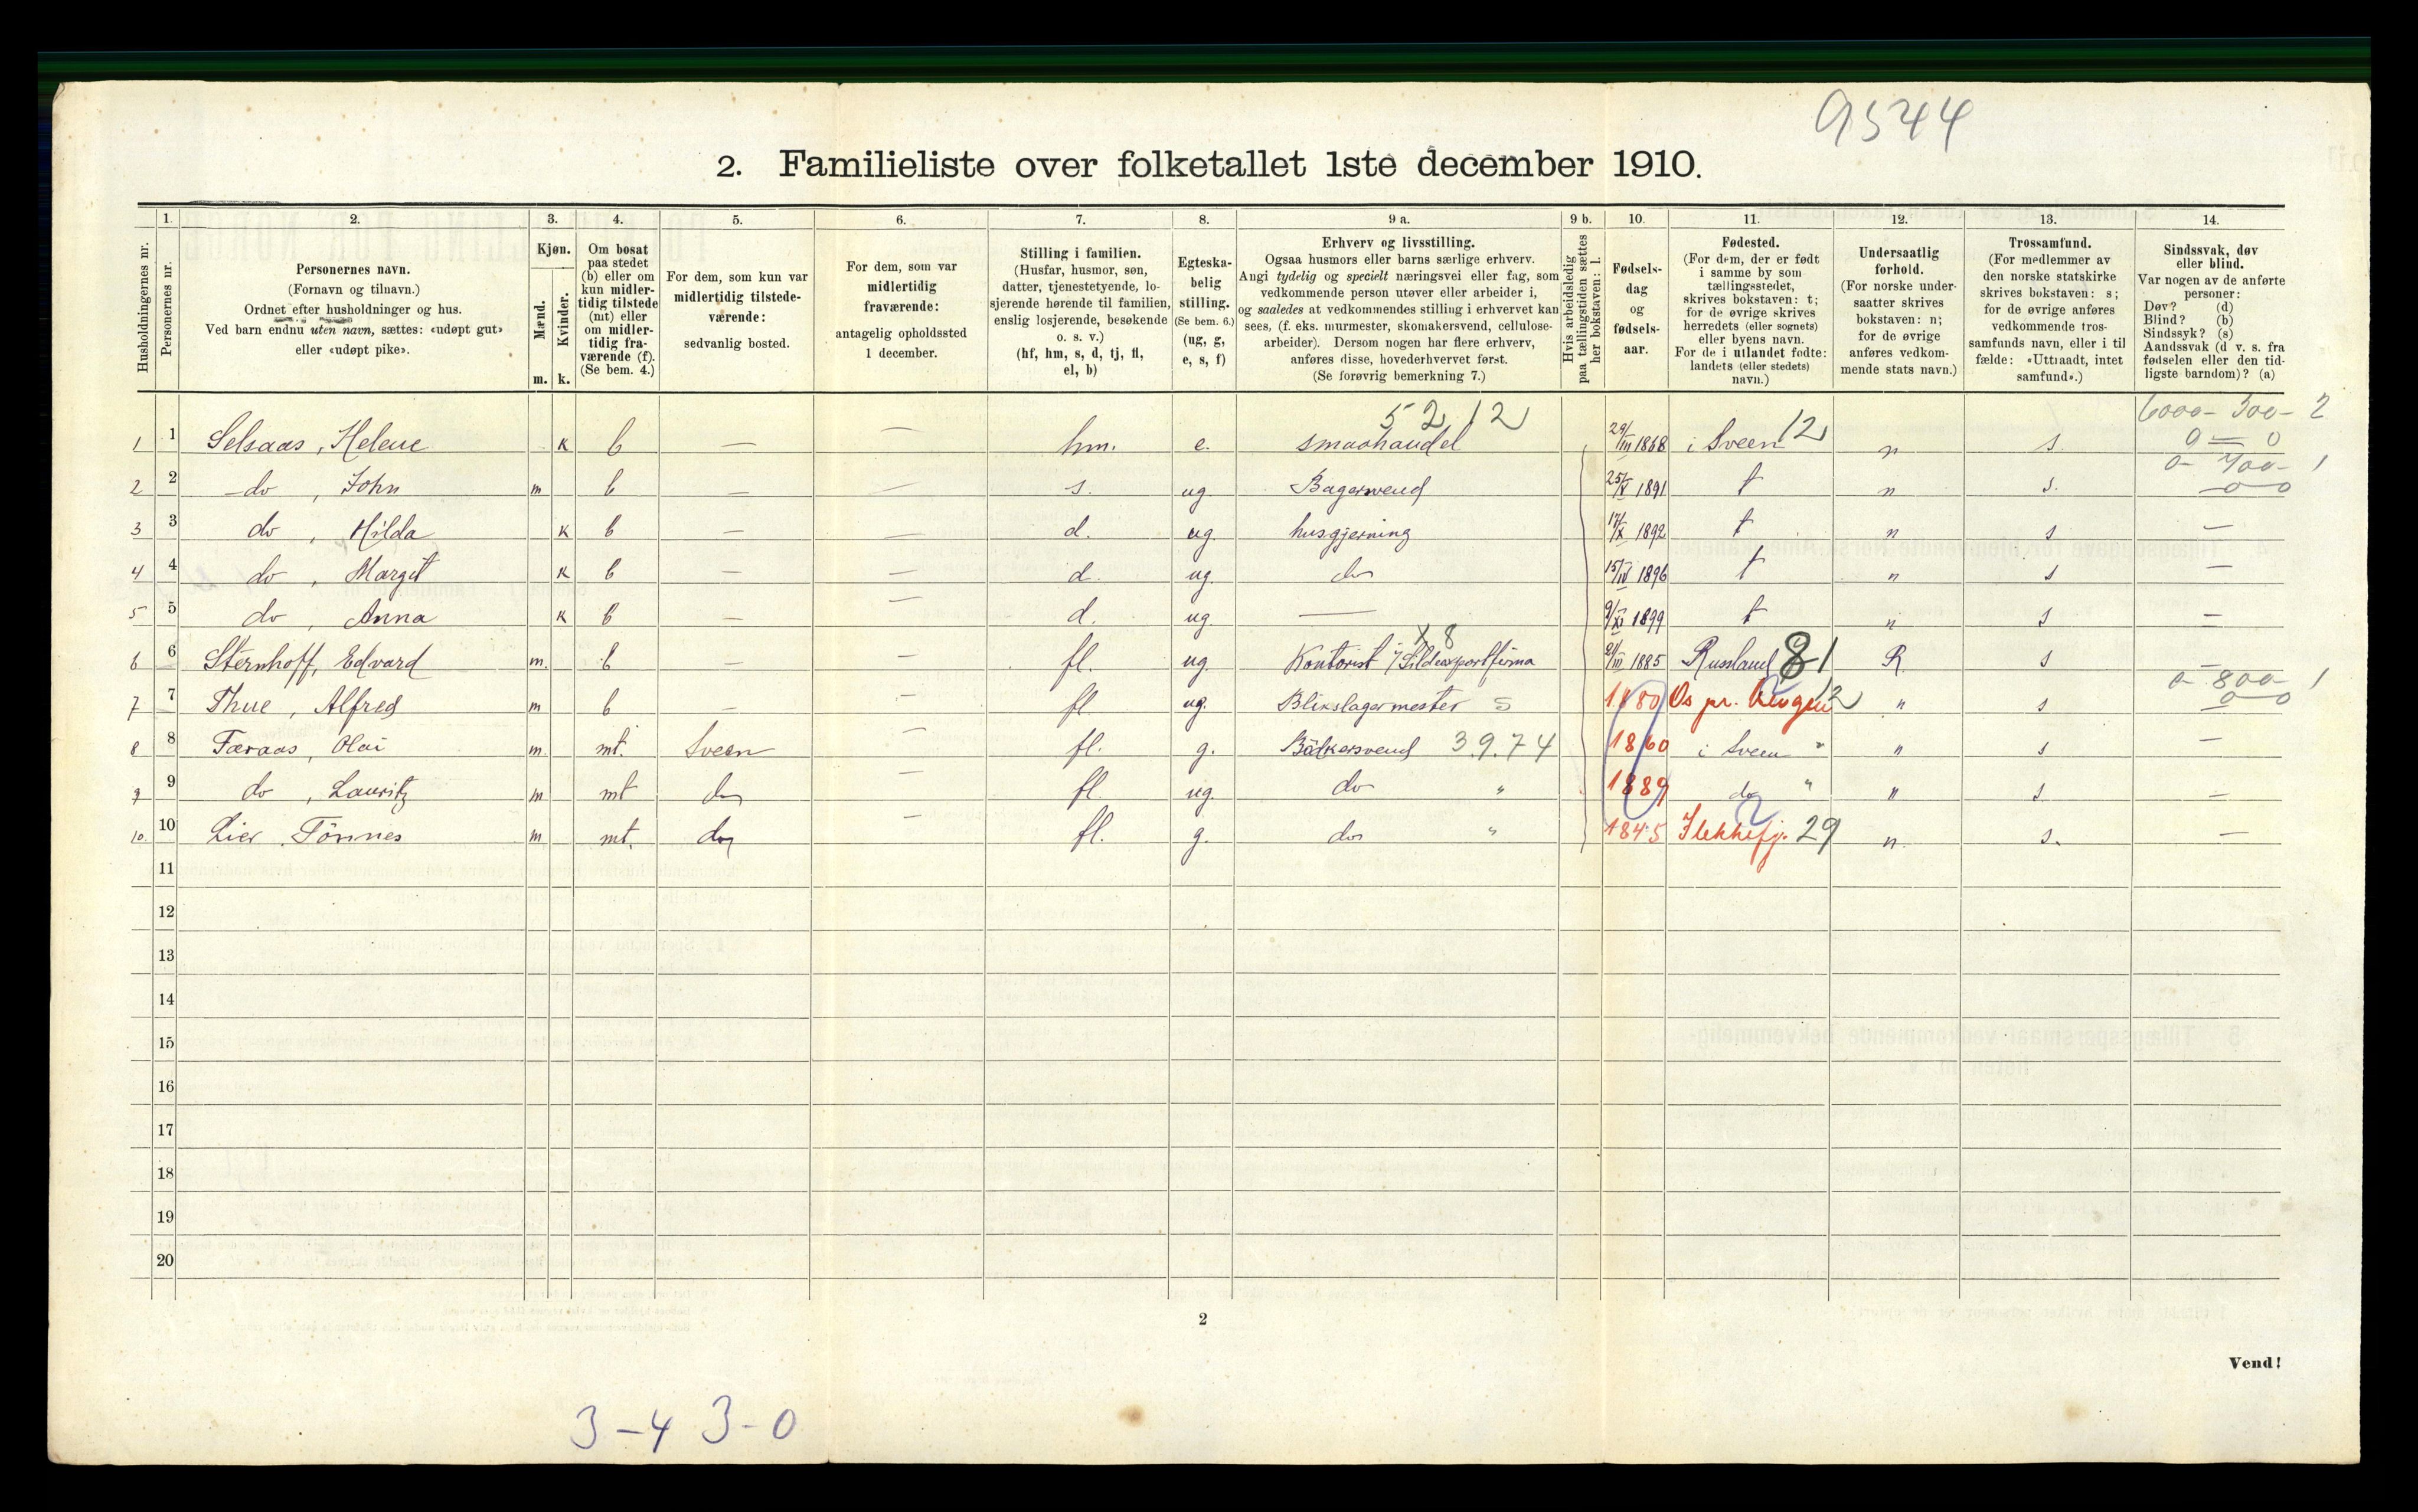 9544
2. Familieliste over folketallet 1ste december 1910.
1. 2. 3. 4. 5. 6. 7. 8. 9 a. 9 b. 10. 11. 12. 13. 14.
Husholdningernes nr.
Personernes nr.
Personernes navn.
(Fornavn og tilnavn.)
Ordnet efter husholdninger og hus.
Ved barn endnu uten navn, sættes: «udøpt gut»
eller «udøpt pike».
Kjøn.
Mænd.
Kvinder.
m. k.
Om bosat
paa stedet
(b) eller om
kun midler-
tidig tilstede
(mt) eller
om midler-
tidig fra-
værende (f).
(Se bem. 4.)
For dem, som kun var
midlertidig tilstede-
værende:
sedvanlig bosted.
For dem, som var
midlertidig
fraværende:
antagelig opholdssted
1 december.
Stilling i familien.
(Husfar, husmor, søn,
datter, tjenestetyende, lo-
sjerende hørende til familien,
enslig losjerende, besøkende
o. s. v.)
(hf, hm, s, d, tj, fl,
el, b)
Egteska-
belig
stilling.
(Se bem. 6.)
(ug, g,
e, s, f)
Erhverv og livsstilling.
Ogsaa husmors eller barns særlige erhverv.
Angi tydelig og specielt næringsvei eller fag, som
vedkommende person utøver eller arbeider i,
og saaledes at vedkommendes stilling i erhvervet kan
sees, (f. eks. murmester, skomakersvend, cellulose-
arbeider). Dersom nogen har flere erhverv,
anføres disse, hovederhvervet først.
(Se forøvrig bemerkning 7.)
Hvis arbeidsledig
paa tællingstiden sættes
her bokstaven: l.
Fødsels-
dag
og
fødsels-
aar.
Fødested.
(For dem, der er født
i samme by som
tællingsstedet,
skrives bokstaven: t;
for de øvrige skrives
herredets (eller sognets)
eller byens navn.
For de i utlandet fødte:
landets (eller stedets)
navn.)
Undersaatlig
forhold.
(For norske under-
saatter skrives
bokstaven: n;
for de øvrige
anføres vedkom-
mende stats navn.)
Trossamfund.
(For medlemmer av
den norske statskirke
skrives bokstaven: s;
for de øvrige anføres
vedkommende tros-
samfunds navn, eller i til
fælde: «Uttraadt, intet
samfund».)
Sindssvak, døv
eller blind.
Var nogen av de anførte
personer:
Døv? (d)
Blind? (b)
Sindssyk? (s)
Aandssvak (d v. s. fra
fødselen eller den tid-
ligste barndom)? (a)
52 12 6000- 300- 2
1 1 Selsaas, Helene k b — — hm. e. smaahandel 29/III 1868 i Sveen 12 n s. 0 — 0
0- 700- 1
2 2 do, John m b — — s. ug. Bagersvend 25/X 1891 t n s. — 0 0
3 3 do, Hilda k b — — d. ug. husgjerning 17/X 1892 t n s —
4 4 do, Margit k b — — d. ug do 15/IV 1896 t n s —
5 5 do, Anna k b — — d. ug. — 9/XI 1899 t n s —
X 8
6 6 Sternhoff, Edvard m. b — — fl. ug. Kontorist i Sildexportfirma 21/III 1885 Russland 81 R. s —
0- 800- 1
7 7 Thue, Alfred m b — — fl ug. Blikslagermester 5 1880 Os pr. Bergen 12 " s 0 0
8 8 Færaas, Olai m. mt. Sveen — fl. g. Bödkersvend 3.9.74 1860 i Sveen " " s —
9 9 do, Lauritz m mt do — fl. ug. do " 1889 do " " s. —
10. 10 Lier, Tönnes m mt. do — fl. g. do " 1845 Flekkefj. 29 n. s. —
11
12
13
14
15
16
17
18
19
20
2
Vend!
3-4 3-0